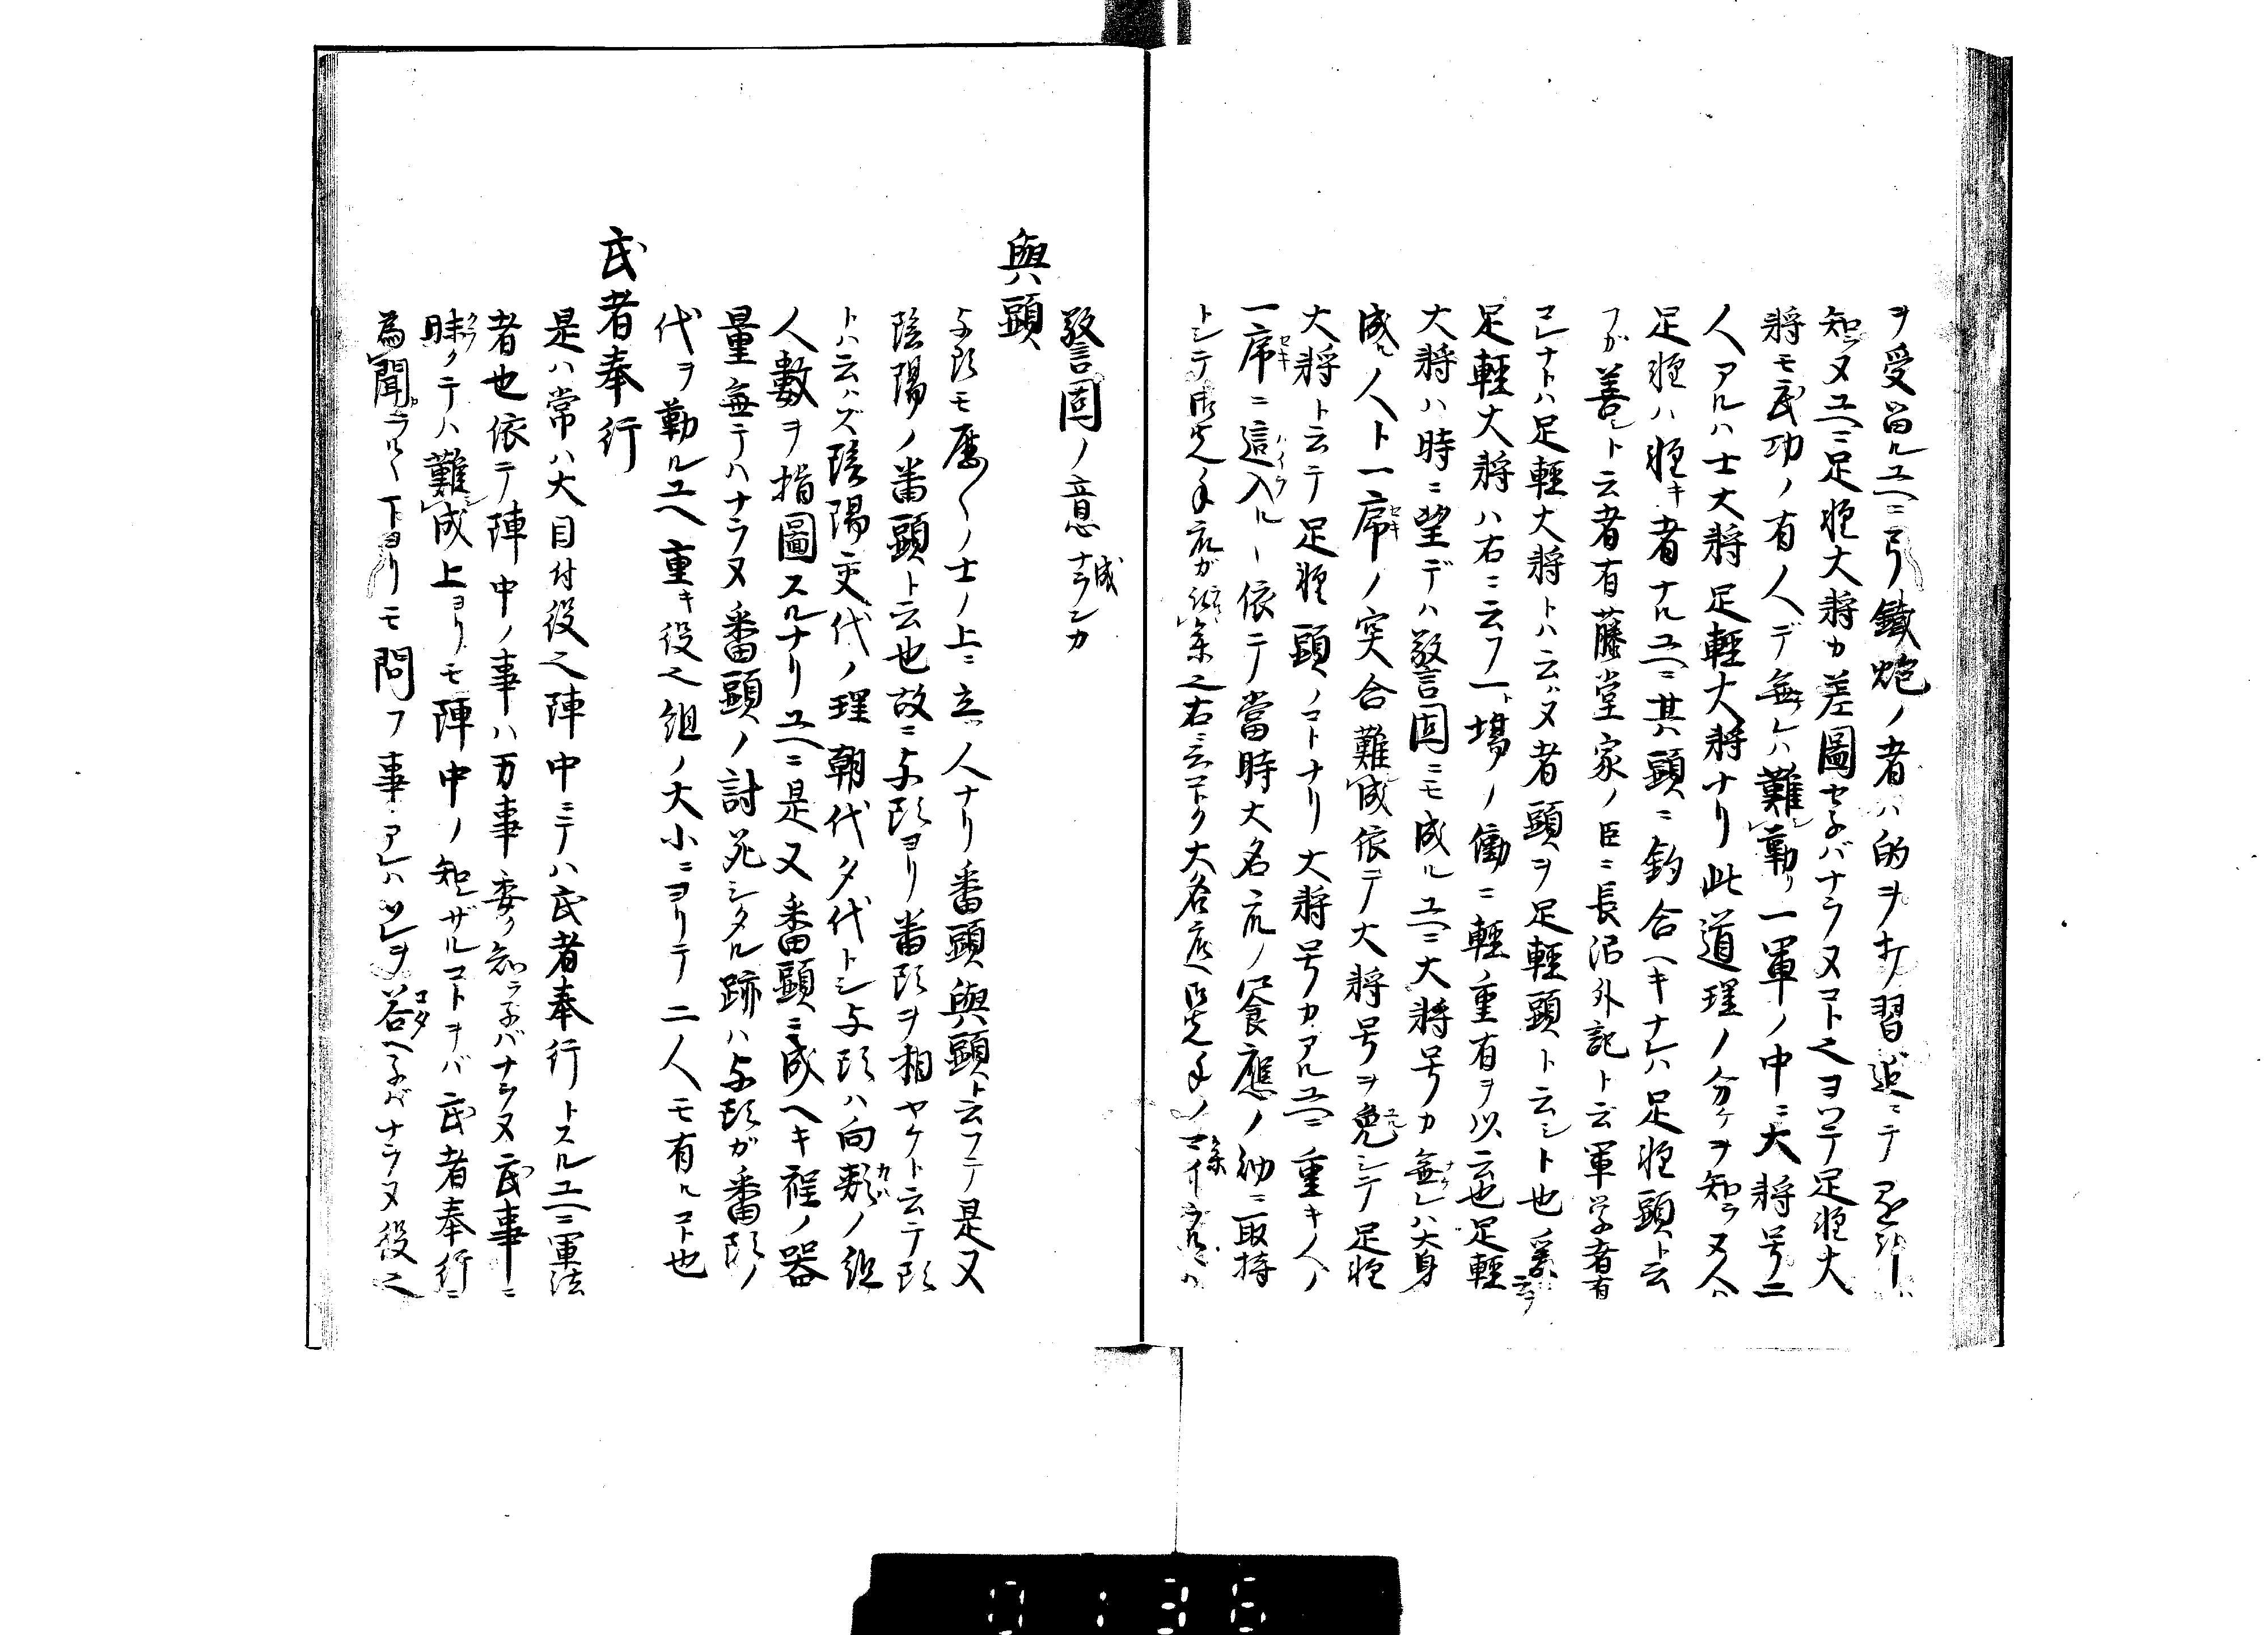 ヲ受留ルユヘニ弓鐵炮ノ者ハ的ヲ打習迄ニテ
知ヌユヘニ足軽大将カ差圖セ子バナラヌコト之ヨツテ足軽大
将モ武功ノ有人デ無レハ難勤リ一軍ノ中ニ大将号二
人アルハ士大将足軽大将ナリ此道理ノ分ケヲ知ラヌ人ハ
足軽ハ軽キ者ナルユヘニ其ハ頭ニ釣合ヘキナレハ足軽頭ト云
フガ善ト云者有藤堂家ノ臣ニ長沼外記ト云軍学者有
コレナトハ足軽大将トハ云ハヌ者頭ヲ足軽頭ト云シト也
足軽大将ハ右ニ云フ一ト場ノ働ニ軽重有ヲ以云也足軽
大将ハ時ニ望デハ警固ニモ成ルユヘニ大将号カ無レハ大身
成ル人ト一席ノ突合難成依テ大将号ヲ免シテ足軽
大将ト云テ足軽頭ノコトナリ大将号カアルユヘニ重キ人ノ
一席ニ這入ルヿ依テ當時大名衆ノ饗應ノ節ニ取持
トシテ御先手衆ガ之右ニ云コトク大名衆御先手ノ
警固ノ意成ナランカ
與頭
与頭モ歴〱ノ士ノ上ニ立人ナリ番頭與頭ト云フテ是又
陰陽ノ番頭ト云也故ニ与頭ヨリ番頭ヲ相ヤケト云テ頭
トハ云ハズ陰陽交代ノ理朝代夕代トシ与頭ハ向数ノ組
人數ヲ指圖スルナリユヘニ是又番頭ニ成ヘキ程ノ器
量無テハナラヌ番頭ノ討死シタル跡ハ与頭ガ番頭ノ
代ヲ勤ルユヘ重キ役之組ノ大小ニヨリテ二人モ有ルコト也
武者奉行
是ハ常ハ大目付役之陣中ニテハ武者奉行トスルユヘニ軍法
者也依テ陣中ノ事ハ万事委ク知ラ子バナラヌ武事ニ
昧クテハ難成上ヨリモ陣中ノ知ザルコトヲバ武者奉行ニ
為聞ラルヽ下ヨリモ問フ事アレハコレヲ答ヘ子バナラヌ役之